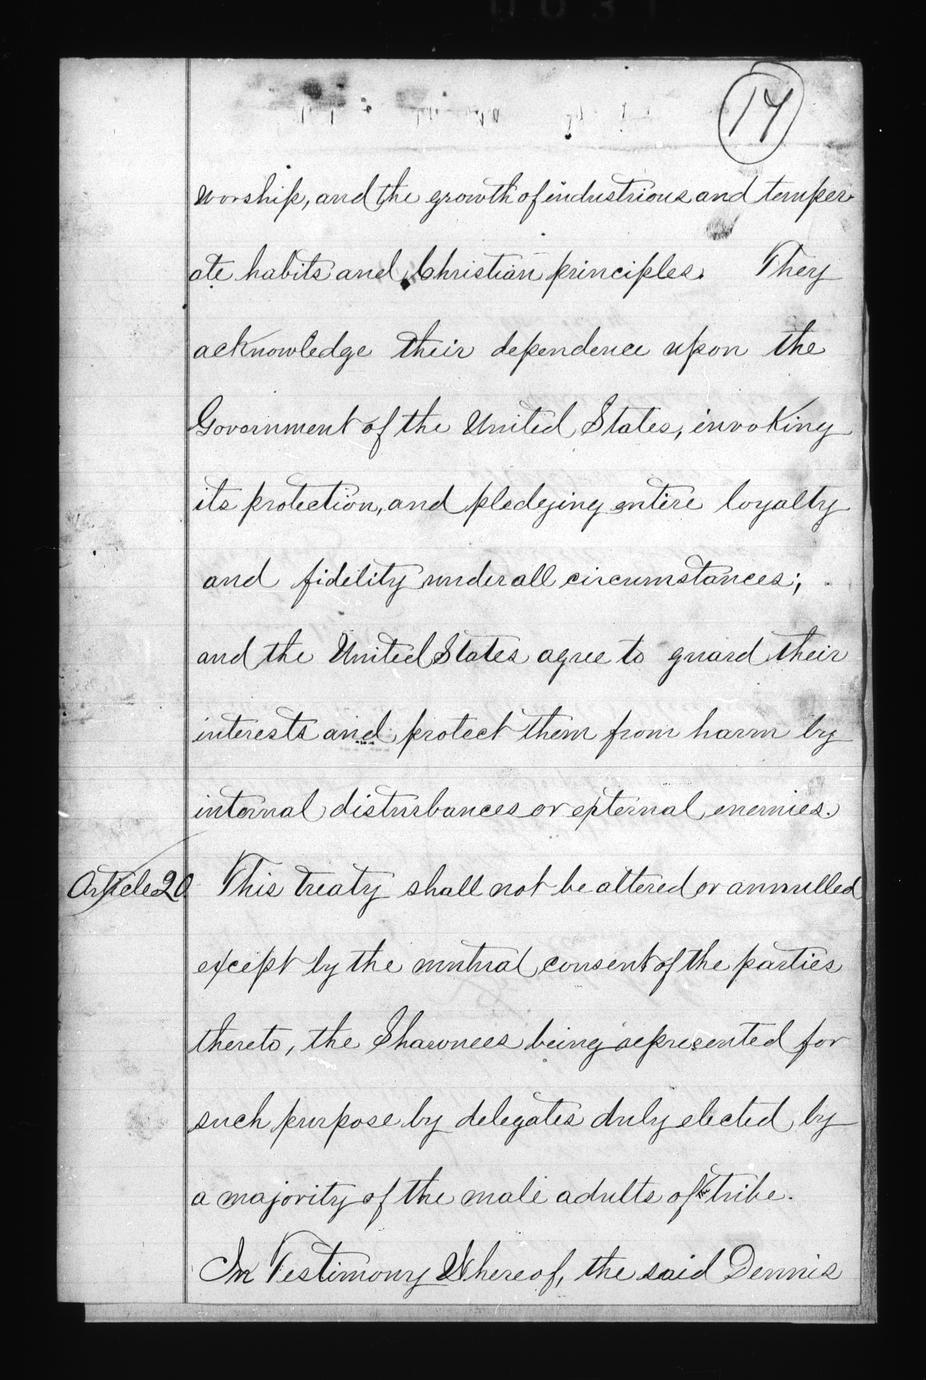 17
worship, and the growth of industrious and temper-
ate habits and Christian principles. They
acknowledge their dependence upon the
Government of the United States, invoking
its protection, and pledging entire loyalty
and fidelity under all circumstances;
and the United States agree to guard their
interests and protect them from harm by
internal disturbances or external enemies.
Article 20. This treaty shall not be altered or annulled
except by the mutual consent of the parties
thereto, the Shawnees being represented for
such purpose by delegates duly elected by
a majority of the male adults of tribe.
In Testimony Whereof, the said Dennis